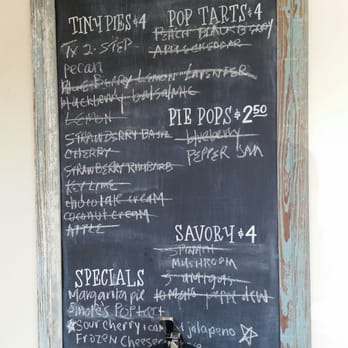 TINY PIES $4
TX 2-STEP
pecan
BLUEBERRY LEMON LAVENDER
blackberry balsamic
LEMON
STRAWBERRY BASIL
CHERRY
STRAWBERRY RHUBARB
KEY LIME
chocolate cream
coconut cream
APPLE
POP TARTS $4
PEACH BLACKBERRY
APPLE CHEDDAR
PIE POPS $2.50
blueberry
PEPPER JAM
SAVORY $4
SPINACH
MUSHROOM
5 amigos
SPECIALS
Margarita pie
Smores Poptart
Sour cherry jalapeno
FROZEN CHEESE